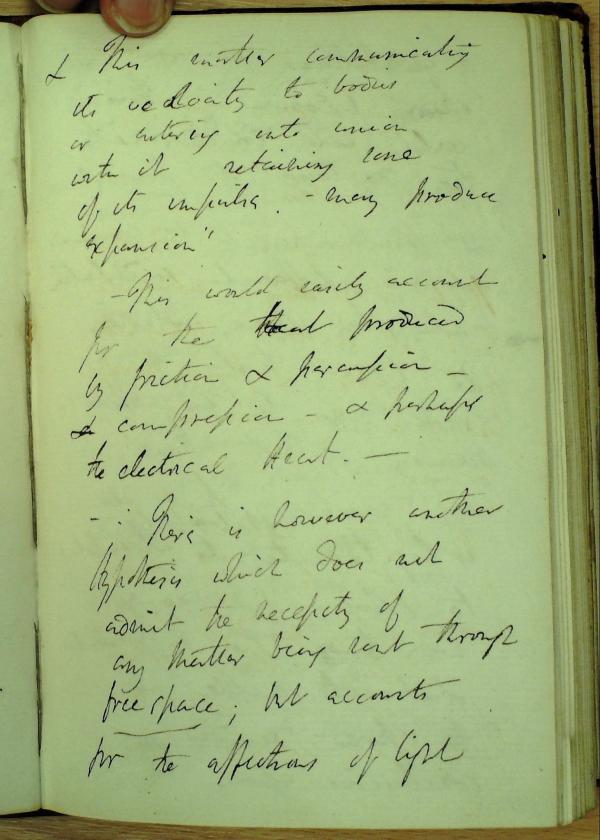 & this matter communicating
its velocity to bodies
or entering into union
with it retaining some
of its impulse. - may produce
expansion"
- This would easily account
for the Heat produced
by friction & percussion -
& compression - & perhaps
the electrical Heat. —
- : There is however another
Hypothesis which does not
admit the necessity of
any Matter being sent through
free space; but accounts
for the affections of light